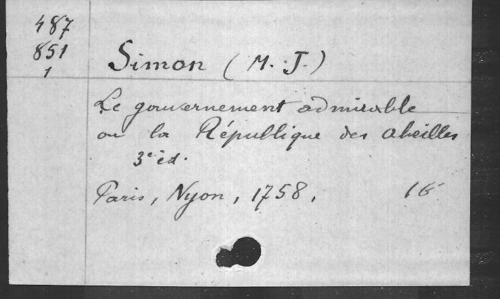 487
851
1
Simon (M. J.)
Le gouvernement admirable
ou la République des abeilles
3e éd.
Paris, Nyon, 1758. 16